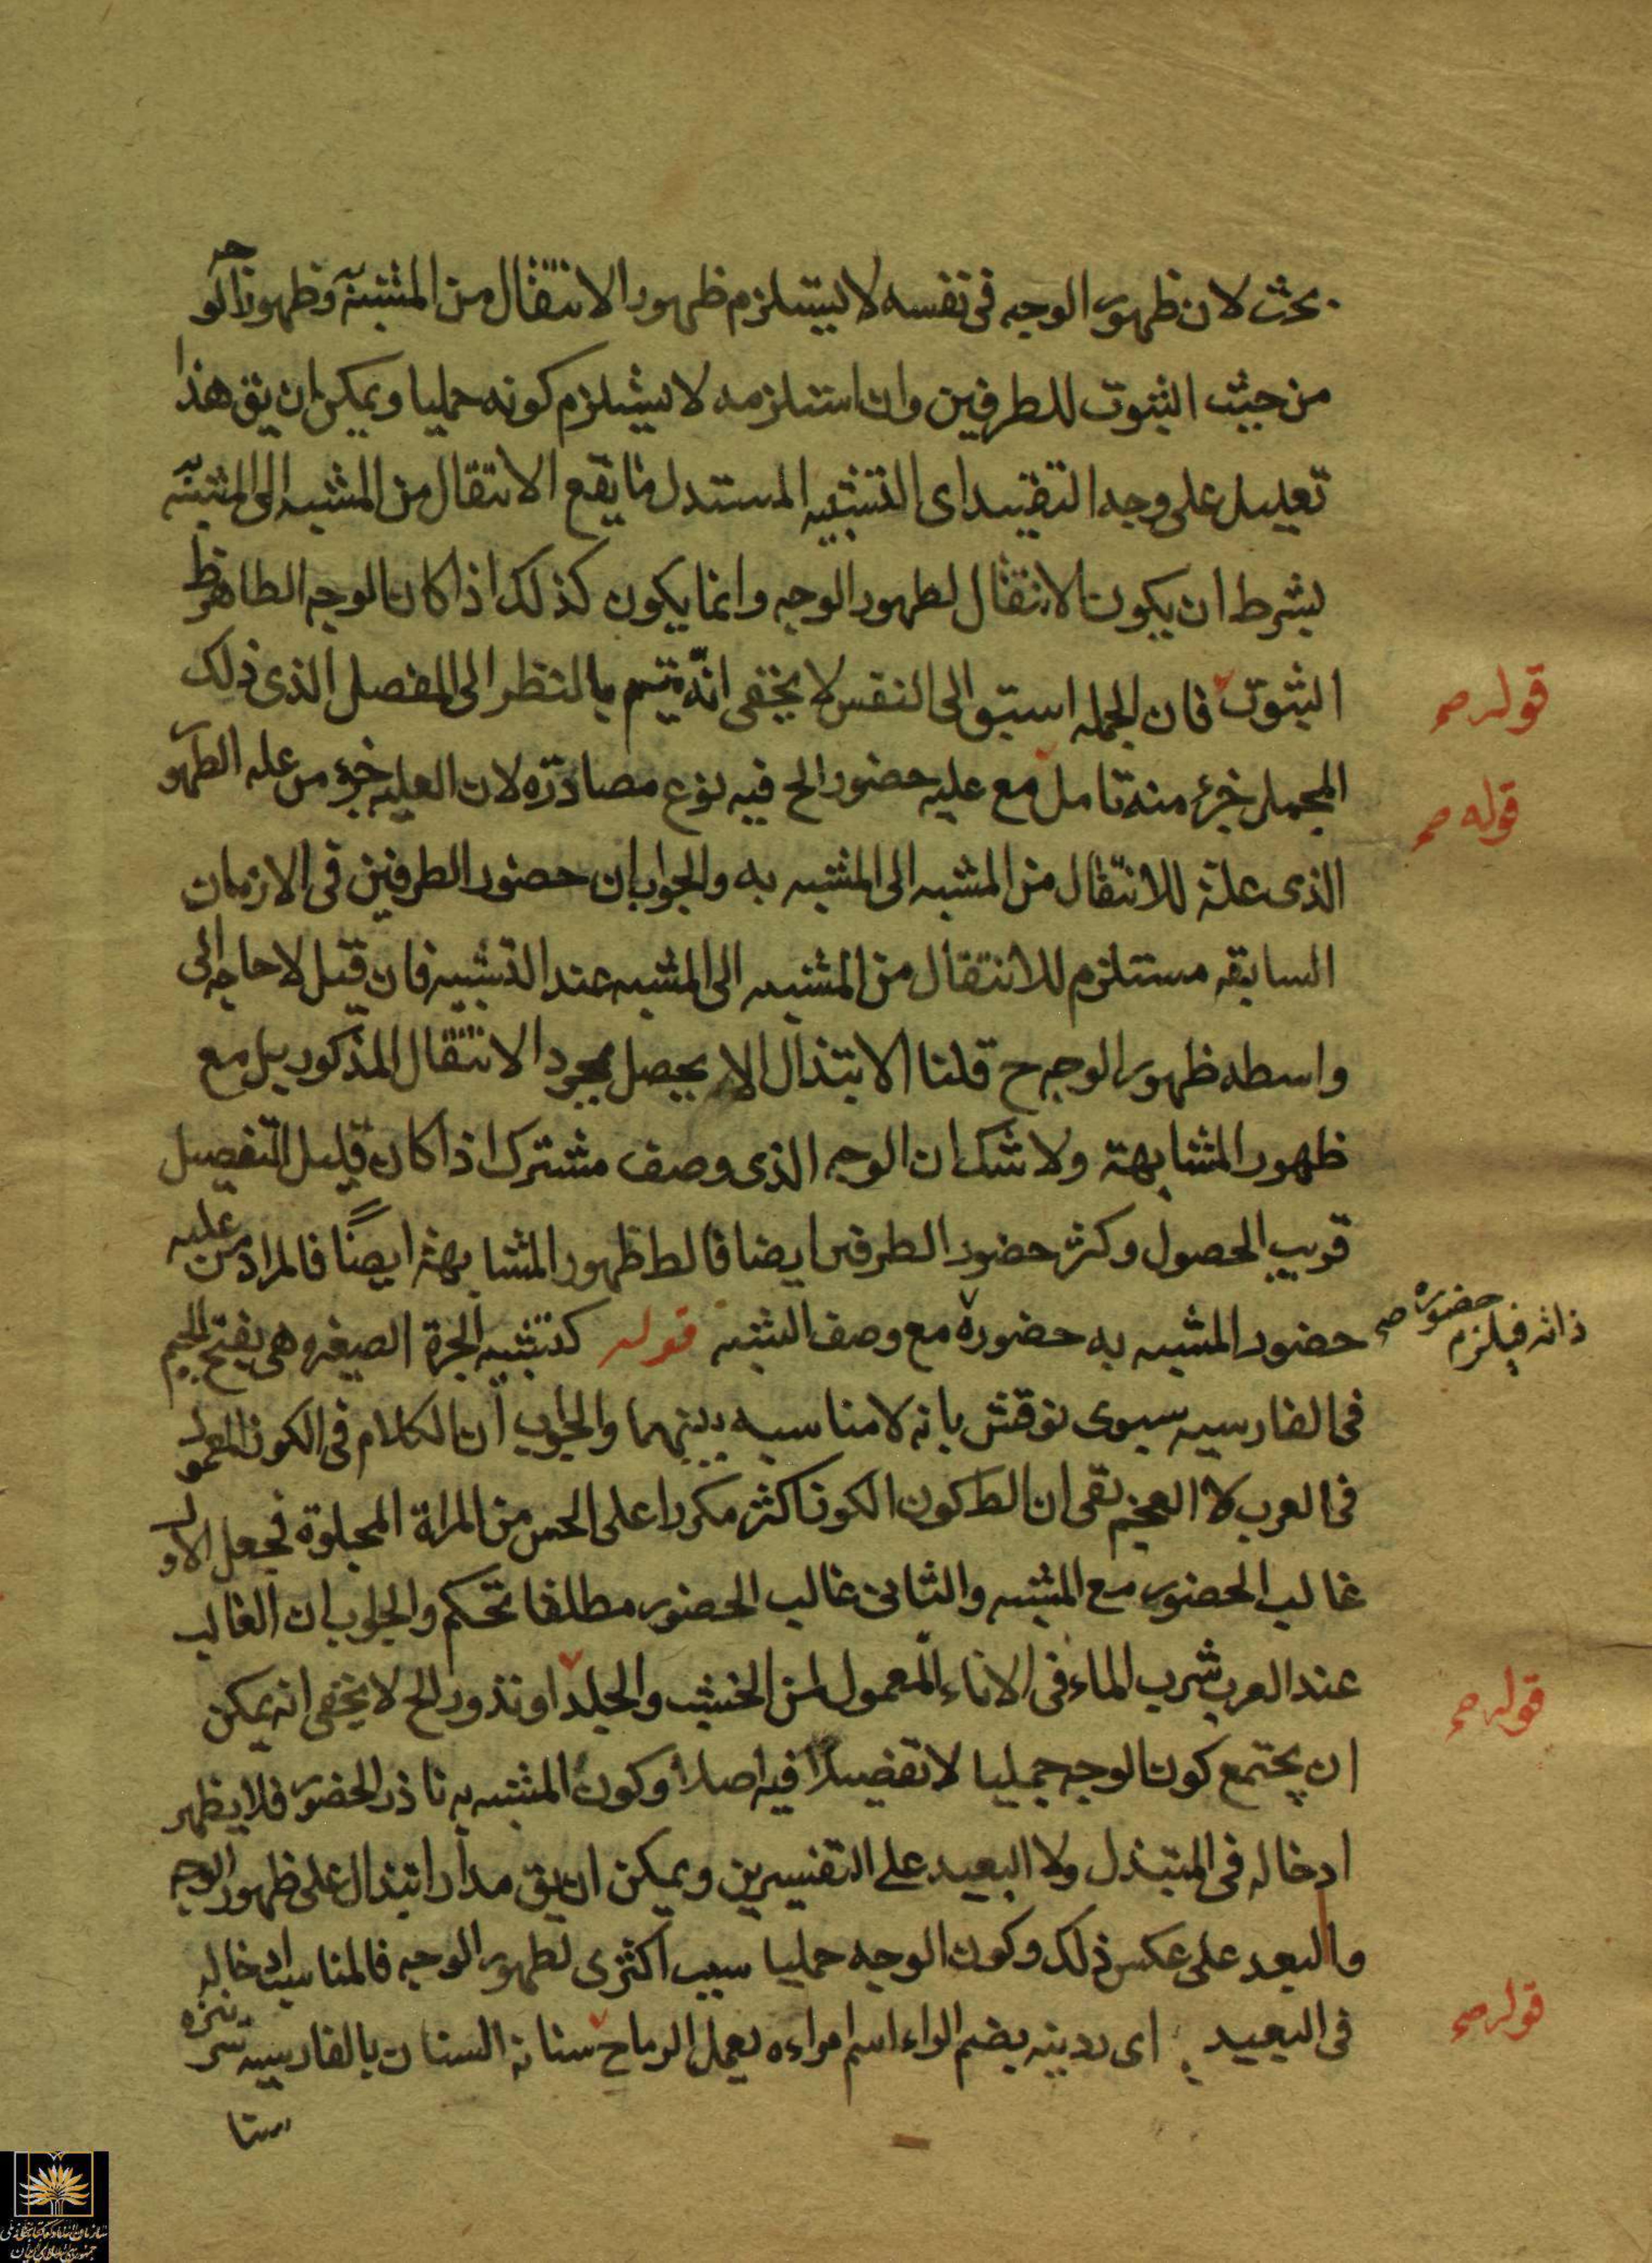 بحث لان ظهور الوجه فى نفسه لا يستلزم ظهور الانتقال من المشبه وظهور الوجه
من حيث الثبوت للطرفين وان استلزمه لا يستلزم كونه جمليا ويمكن ان يق هذا
تعليل على وجه التقييد اى التشبيه المبتذل ما يقع الانتقال من المشبه الى المشبه به
بشرط ان يكون الانتقال لظهور الوجه وانما يكون كذلك اذا كان الوجه الظاهر
الثبوت فان الجمله اسبق الى النفس لا يخفى انه يتم بالنظر الى المفصل الذى ذلك
قوله صح
المجمل جزء منه تامل مع عليه حضور الخ فيه نوع مصادرة لان العليه جزء من علة الظهور
قوله صح
الذى علة للانتقال من المشبه الى المشبه به والجواب ان حضور الطرفين فى الازمان
السابقه مستلزم للانتقال من المشبه الى المشبه عند التشبيه فان قيل لا حاجه الى
واسطه ظهور الوجه ح قلنا الابتذال لا يحصل بمجرد الانتقال المذكور بل مع
ظهور المشابهة ولا شك ان الوجه الذى وصف مشترك اذا كان قليل التفصيل
قريب الحصول وكثر حضور الطرفين ايضا فالظ ظهور المشابهة ايضًا فالمراد من عليه
حضور المشبه به حضوره مع وصف الشبه قوله كتشبيه الجرة الصغيره هى بفتح الجيم
ذاته فيلزم حضوره صح
فى الفارسيه سبوى نوقش بانه لا مناسبه بينهما والجواب ان الكلام فى الكوز المعمول
فى العرب لا العجم بقى ان الظ كون الكوز اكثر مكررا على الحس من المراة المجلوة فجعل الاول
غالب الحضور مع المشبه والثانى غالب الحضور مطلقا تحكم والجواب ان الغالب
عند العرب شرب الماء فى الاناء المعمول من الخشب والجلد او ندور الخ لا يخفى انه يمكن
قوله صح
ان يجتمع كون الوجه جمليا لا تفصيلا فيه اصلا وكون المشبه به نادر الحضور فلا يظهر
ادخاله فى المبتذل ولا البعيد على التفسيرين ويمكن ان يق مدار ابتذال على ظهور الوجه
والبعد على عكس ذلك وكون الوجه جمليا سبب اكثرى لظهور الوجه فالمناسب ادخاله
فى البعيد اى ردينه بضم الراء اسم امراءه يعمل الرماح سنانه السنان بالفارسيه سر نيزه
قوله صح
سنا